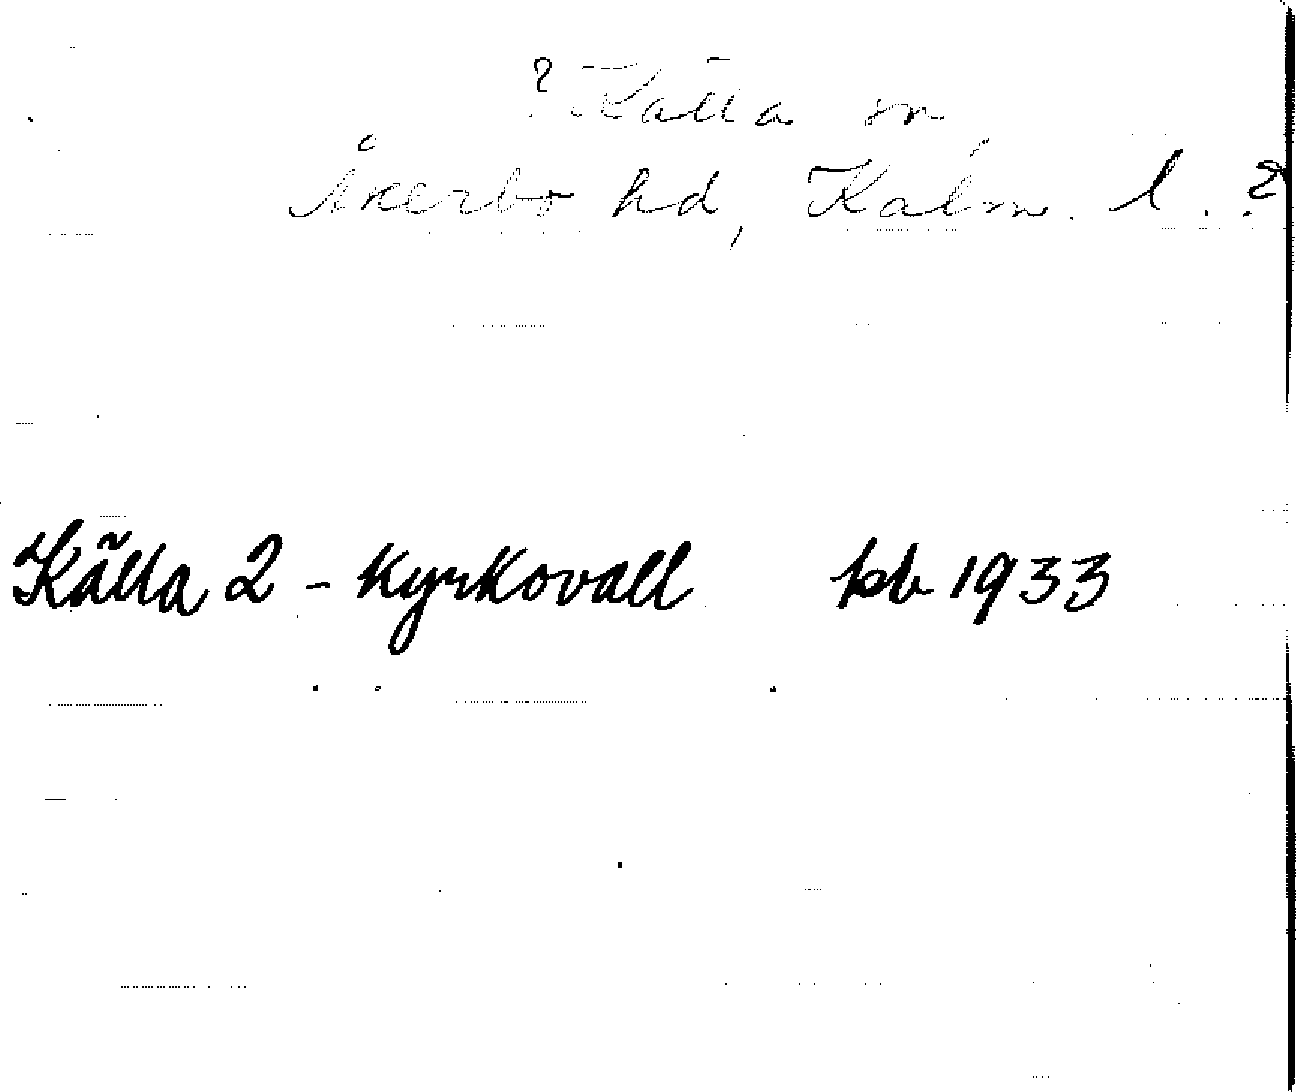 ? Källa sn
Åkerbo hd, Kalm. l. ?
Källa 2 - Kyrkovall kb 1933